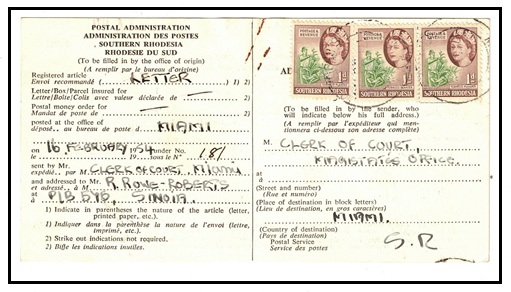 POSTAL ADMINISTRATION
ADMINISTRATION DES POSTES
SOUTHERN RHODESIA
RHODESIE DU SUD
(To be filled in by the office of origin)
(A remplir par le bureau d'origine)
Registered article
Envoi recommandé LETTER 1) 2)
Letter/Box/Parcel insured for
Lettre/Boîte/Colis avec valeur déclarée de 1) 2)
Postal money order for
Mandat de poste de 2)
posted at the office of
déposé au bureau de poste d MIAMI
on 16 FEBRUARY 1954 under No.
le 19 sous le Nº 181
sent by Mr.
expédié, par M. CLERK OF COURT, MIAMI
and addressed to Mr.
et adressé, à M. R. ROWE-ROBERTS
at
à P/B SINOIA
1) Indicate in parentheses the nature of the article (letter,
printed paper, etc.).
1) Indiquer dans la parenthèse la nature de l'envoi (lettre,
imprimé, etc.).
2) Strike out indications not required.
2) Biffer les indications inutiles.
POSTAGE & REVENUE 1d SOUTHERN RHODESIA
POSTAGE & REVENUE 1d SOUTHERN RHODESIA
POSTAGE & REVENUE 1d SOUTHERN RHODESIA
(To be filled in by the sender, who
will indicate below his full address.)
(A remplir par l'expéditeur qui men-
tionnera ci-dessous son adresse complète)
M. CLERK OF COURT,
at
à
(Street and number)
(Rue et numéro)
(Place of destination in block letters)
(Lieu de destination, en gros caractères)
MIAMI
(Country of destination)
(Pays de destination) S.R
Postal Service
Service des postes